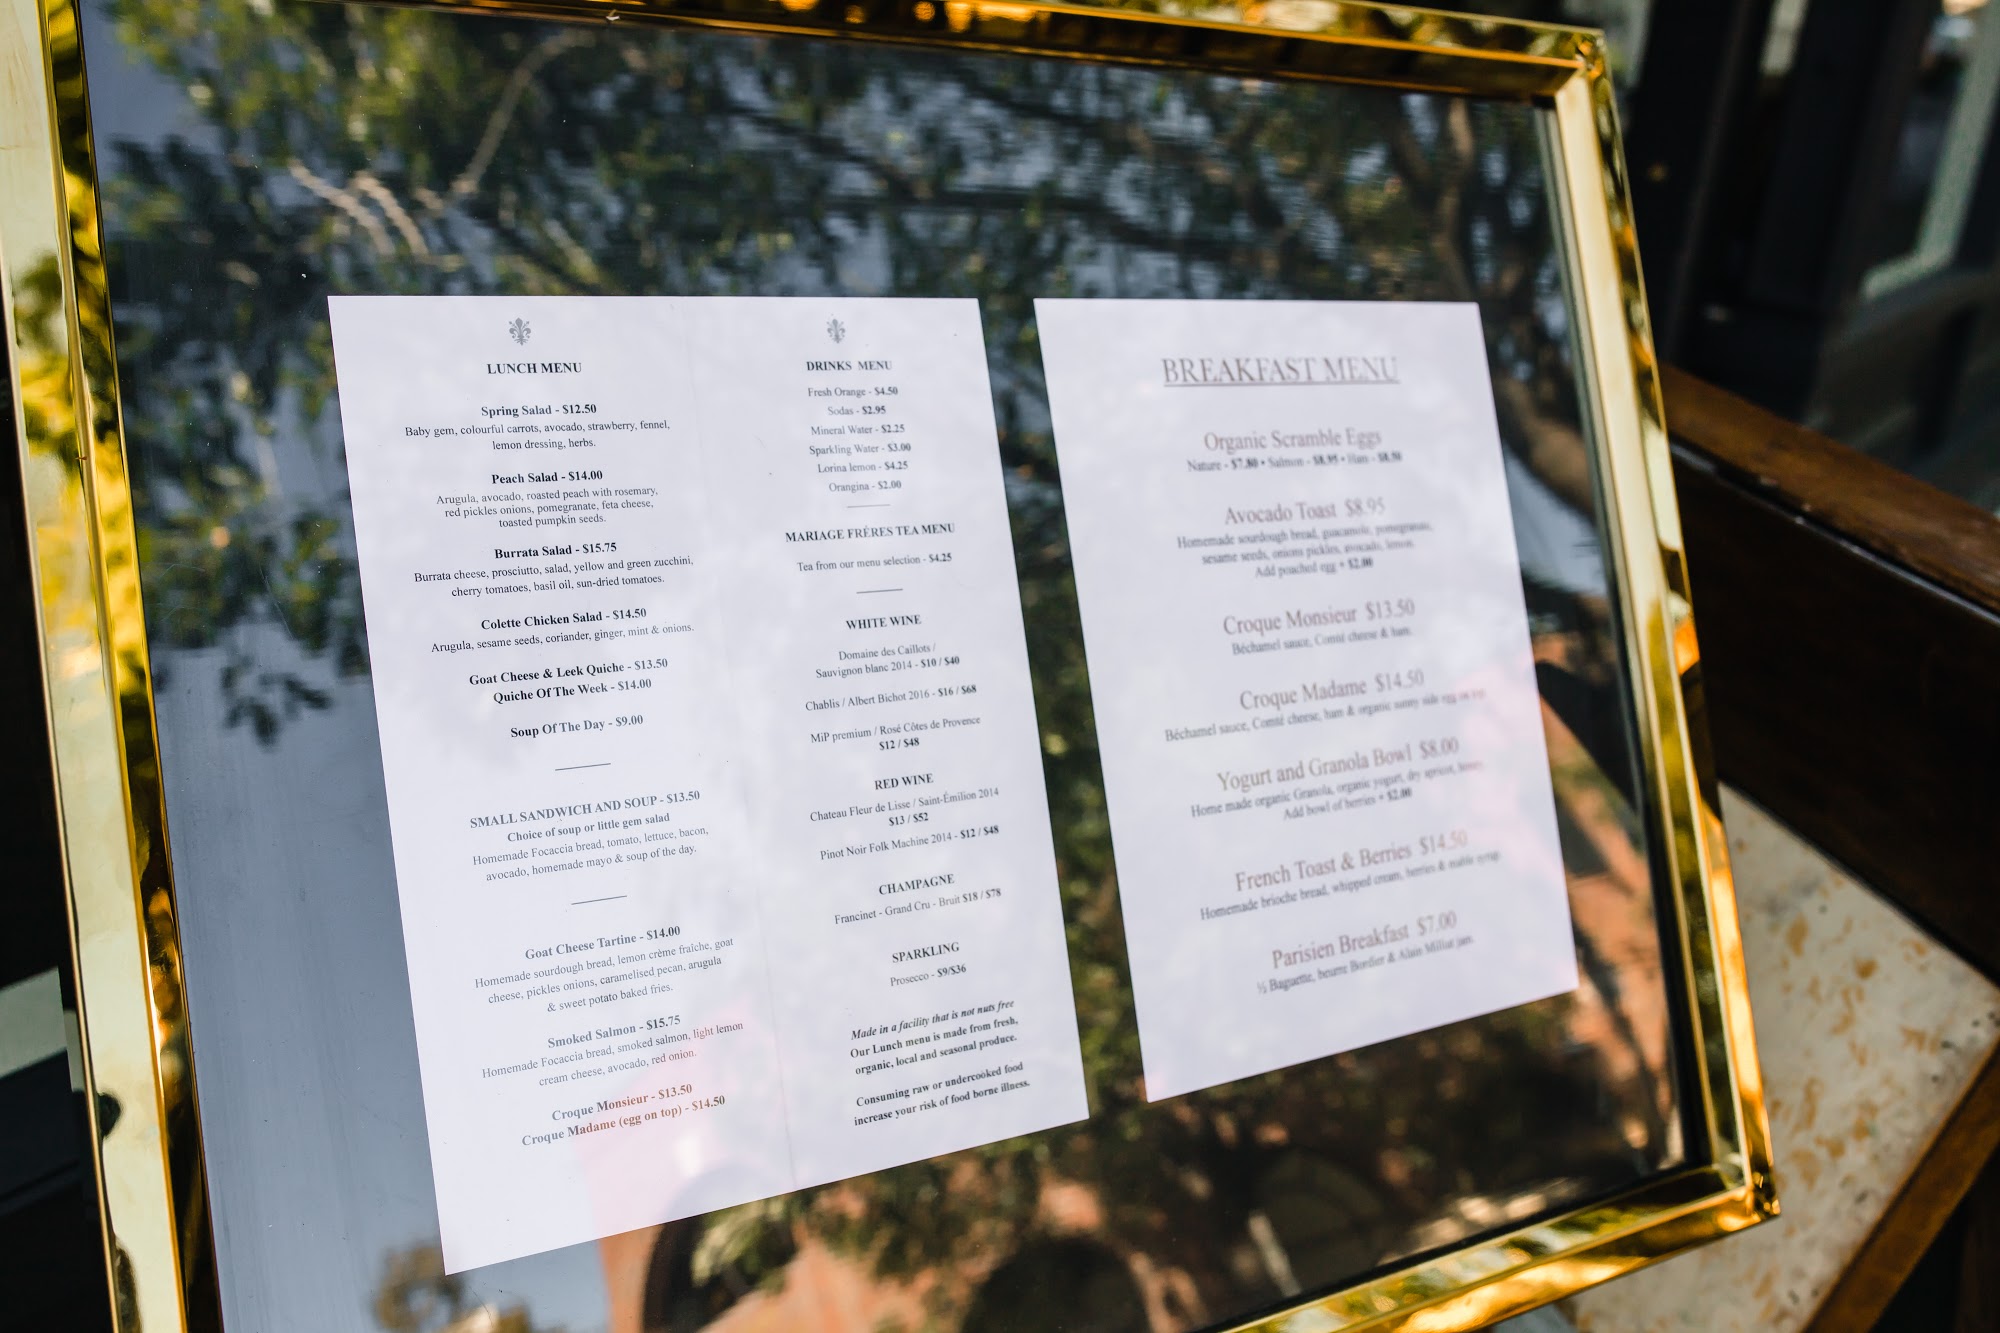 LUNCH MENU
Spring Salad - $12.50
Baby gem, colourful carrots, avocado, strawberry, fennel,
lemon dressing, herbs.
Peach Salad - $14.00
Arugula, avocado, roasted peach with rosemary,
red pickles onions, pomegranate, feta cheese,
toasted pumpkin seeds.
Burrata Salad - $15.75
Burrata cheese, prosciutto, salad, yellow and green zucchini,
cherry tomatoes, basil oil, sun-dried tomatoes.
Colette Chicken Salad - $14.50
Arugula, sesame seeds, coriander, ginger, mint & onions.
Goat Cheese & Leek Quiche - $13.50
Quiche Of The Week - $14.00
Soup Of The Day - $9.00
SMALL SANDWICH AND SOUP - $13.50
Choice of soup or little gem salad
Homemade Focaccia bread, tomato, lettuce, bacon,
avocado, homemade mayo & soup of the day.
Goat Cheese Tartine - $14.00
Homemade sourdough bread, lemon crème fraîche, goat
cheese, pickles onions, caramelised pecan, arugula
& sweet potato baked fries.
Smoked Salmon - $15.75
Homemade Focaccia bread, smoked salmon, light lemon
cream cheese, avocado, red onion.
Croque Monsieur - $13.50
Croque Madame (egg on top) - $14.50
DRINKS MENU
Fresh Orange - $4.50
Sodas - $2.95
Mineral Water - $2.25
Sparkling Water - $3.00
Lorina lemon - $4.25
Orangina - $2.00
MARIAGE FRÈRES TEA MENU
Tea from our menu selection - $4.25
WHITE WINE
Domaine des Caillots /
Sauvignon blanc 2014 - $10 / $40
Chablis / Albert Bichot 2016 - $16 / $68
MiP premium / Rosé Côtes de Provence
$12 / $48
RED WINE
Chateau Fleur de Lisse / Saint-Émilion 2014
$13 / $52
Pinot Noir Folk Machine 2014 - $12 / $48
CHAMPAGNE
Francinet - Grand Cru - Bruit $18 / $78
SPARKLING
Prosecco - $9/$36
Made in a facility that is not nuts free
Our Lunch menu is made from fresh,
organic, local and seasonal produce.
Consuming raw or undercooked food
increase your risk of food borne illness.
BREAKFAST MENU
Organic Scramble Eggs
Nature - $7.80 • Salmon - $8.95 • Ham - $8.50
Avocado Toast $8.95
Homemade sourdough bread, guacamole, pomegranate,
sesame seeds, onions pickles, avocado, lemon.
Add poached egg + $2.00
Croque Monsieur $13.50
Béchamel sauce, Comté cheese & ham.
Croque Madame $14.50
Béchamel sauce, Comté cheese, ham & organic sunny side egg on top.
Yogurt and Granola Bowl $8.00
Home made organic Granola, organic yogurt, dry apricot, honey.
Add bowl of berries + $2.00
French Toast & Berries $14.50
Homemade brioche bread, whipped cream, berries & maple syrup.
Parisien Breakfast $7.00
½ Baguette, beurre Bordier & Alain Milliat jam.